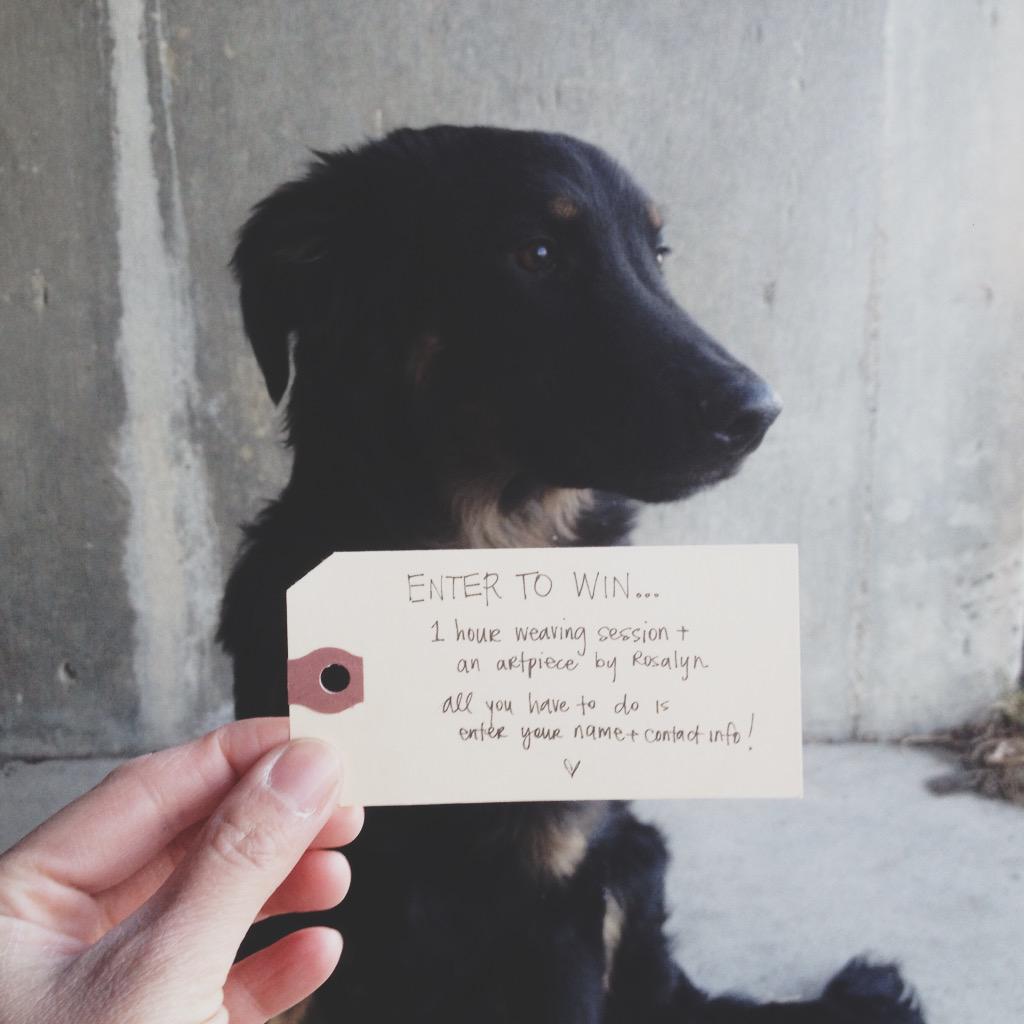 ENTER TO WIN...
1 hour weaving session +
an artpiece by Rosalyn
all you have to do is
enter your name + contact info!